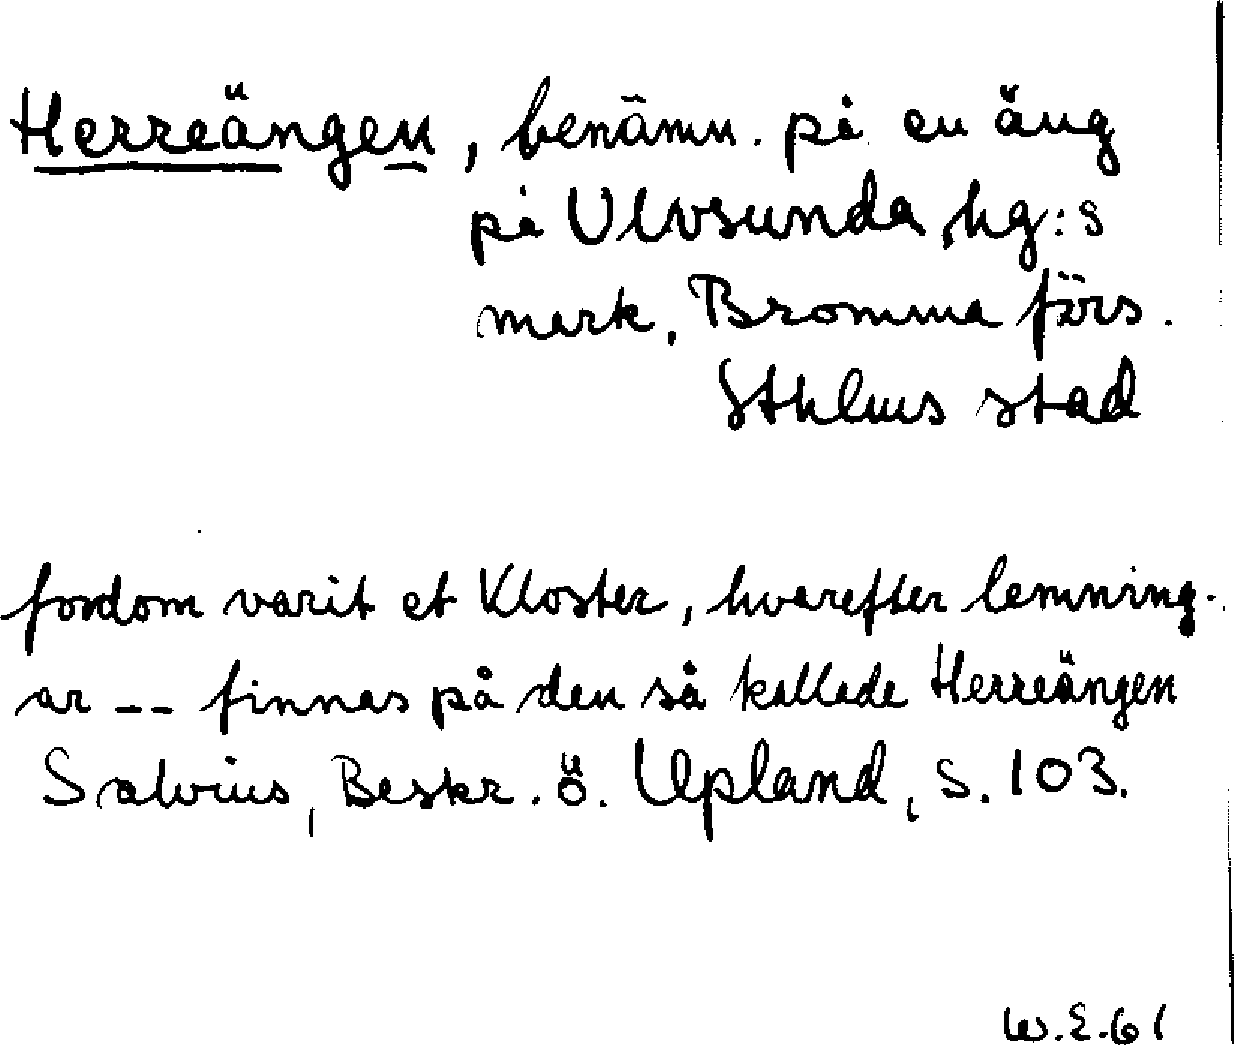 Herreängen, benämn. på en äng
på Ulvsunda, hg:s
mark, Bromma förs.
Sthlms stad
fordom varit et Kloster, hvarefter lemning-
ar -- finnas på den så kallade Herreängen
Salvius, Beskr. ö. Upland, S. 103.
W.E. 61